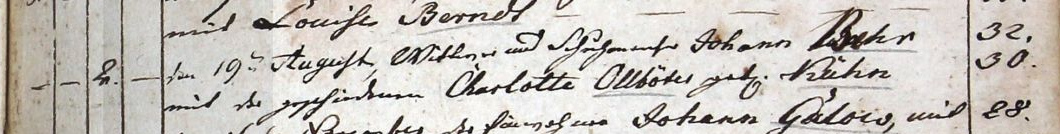 mit Louise Berndt
2. den 19ten August, Wittwer und Schuhmacher Johann Behr 32.
mit der geschiedenen Charlotte Ollböter geb. Kühn 30.
der Einwohner Johann Gülow, mit 28.